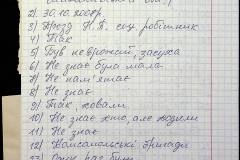 2) 30.10.2008р.
3) Н. В. соц. робітник
4) Так
5) Був неврожай, засуха
6) Не знає була мала
7) Не пам'ятає
8) Не знає
9) Так, ховали
10) Не знає хто, але ходили
11) Не знає
12) Комсомольські бригади
13) раз